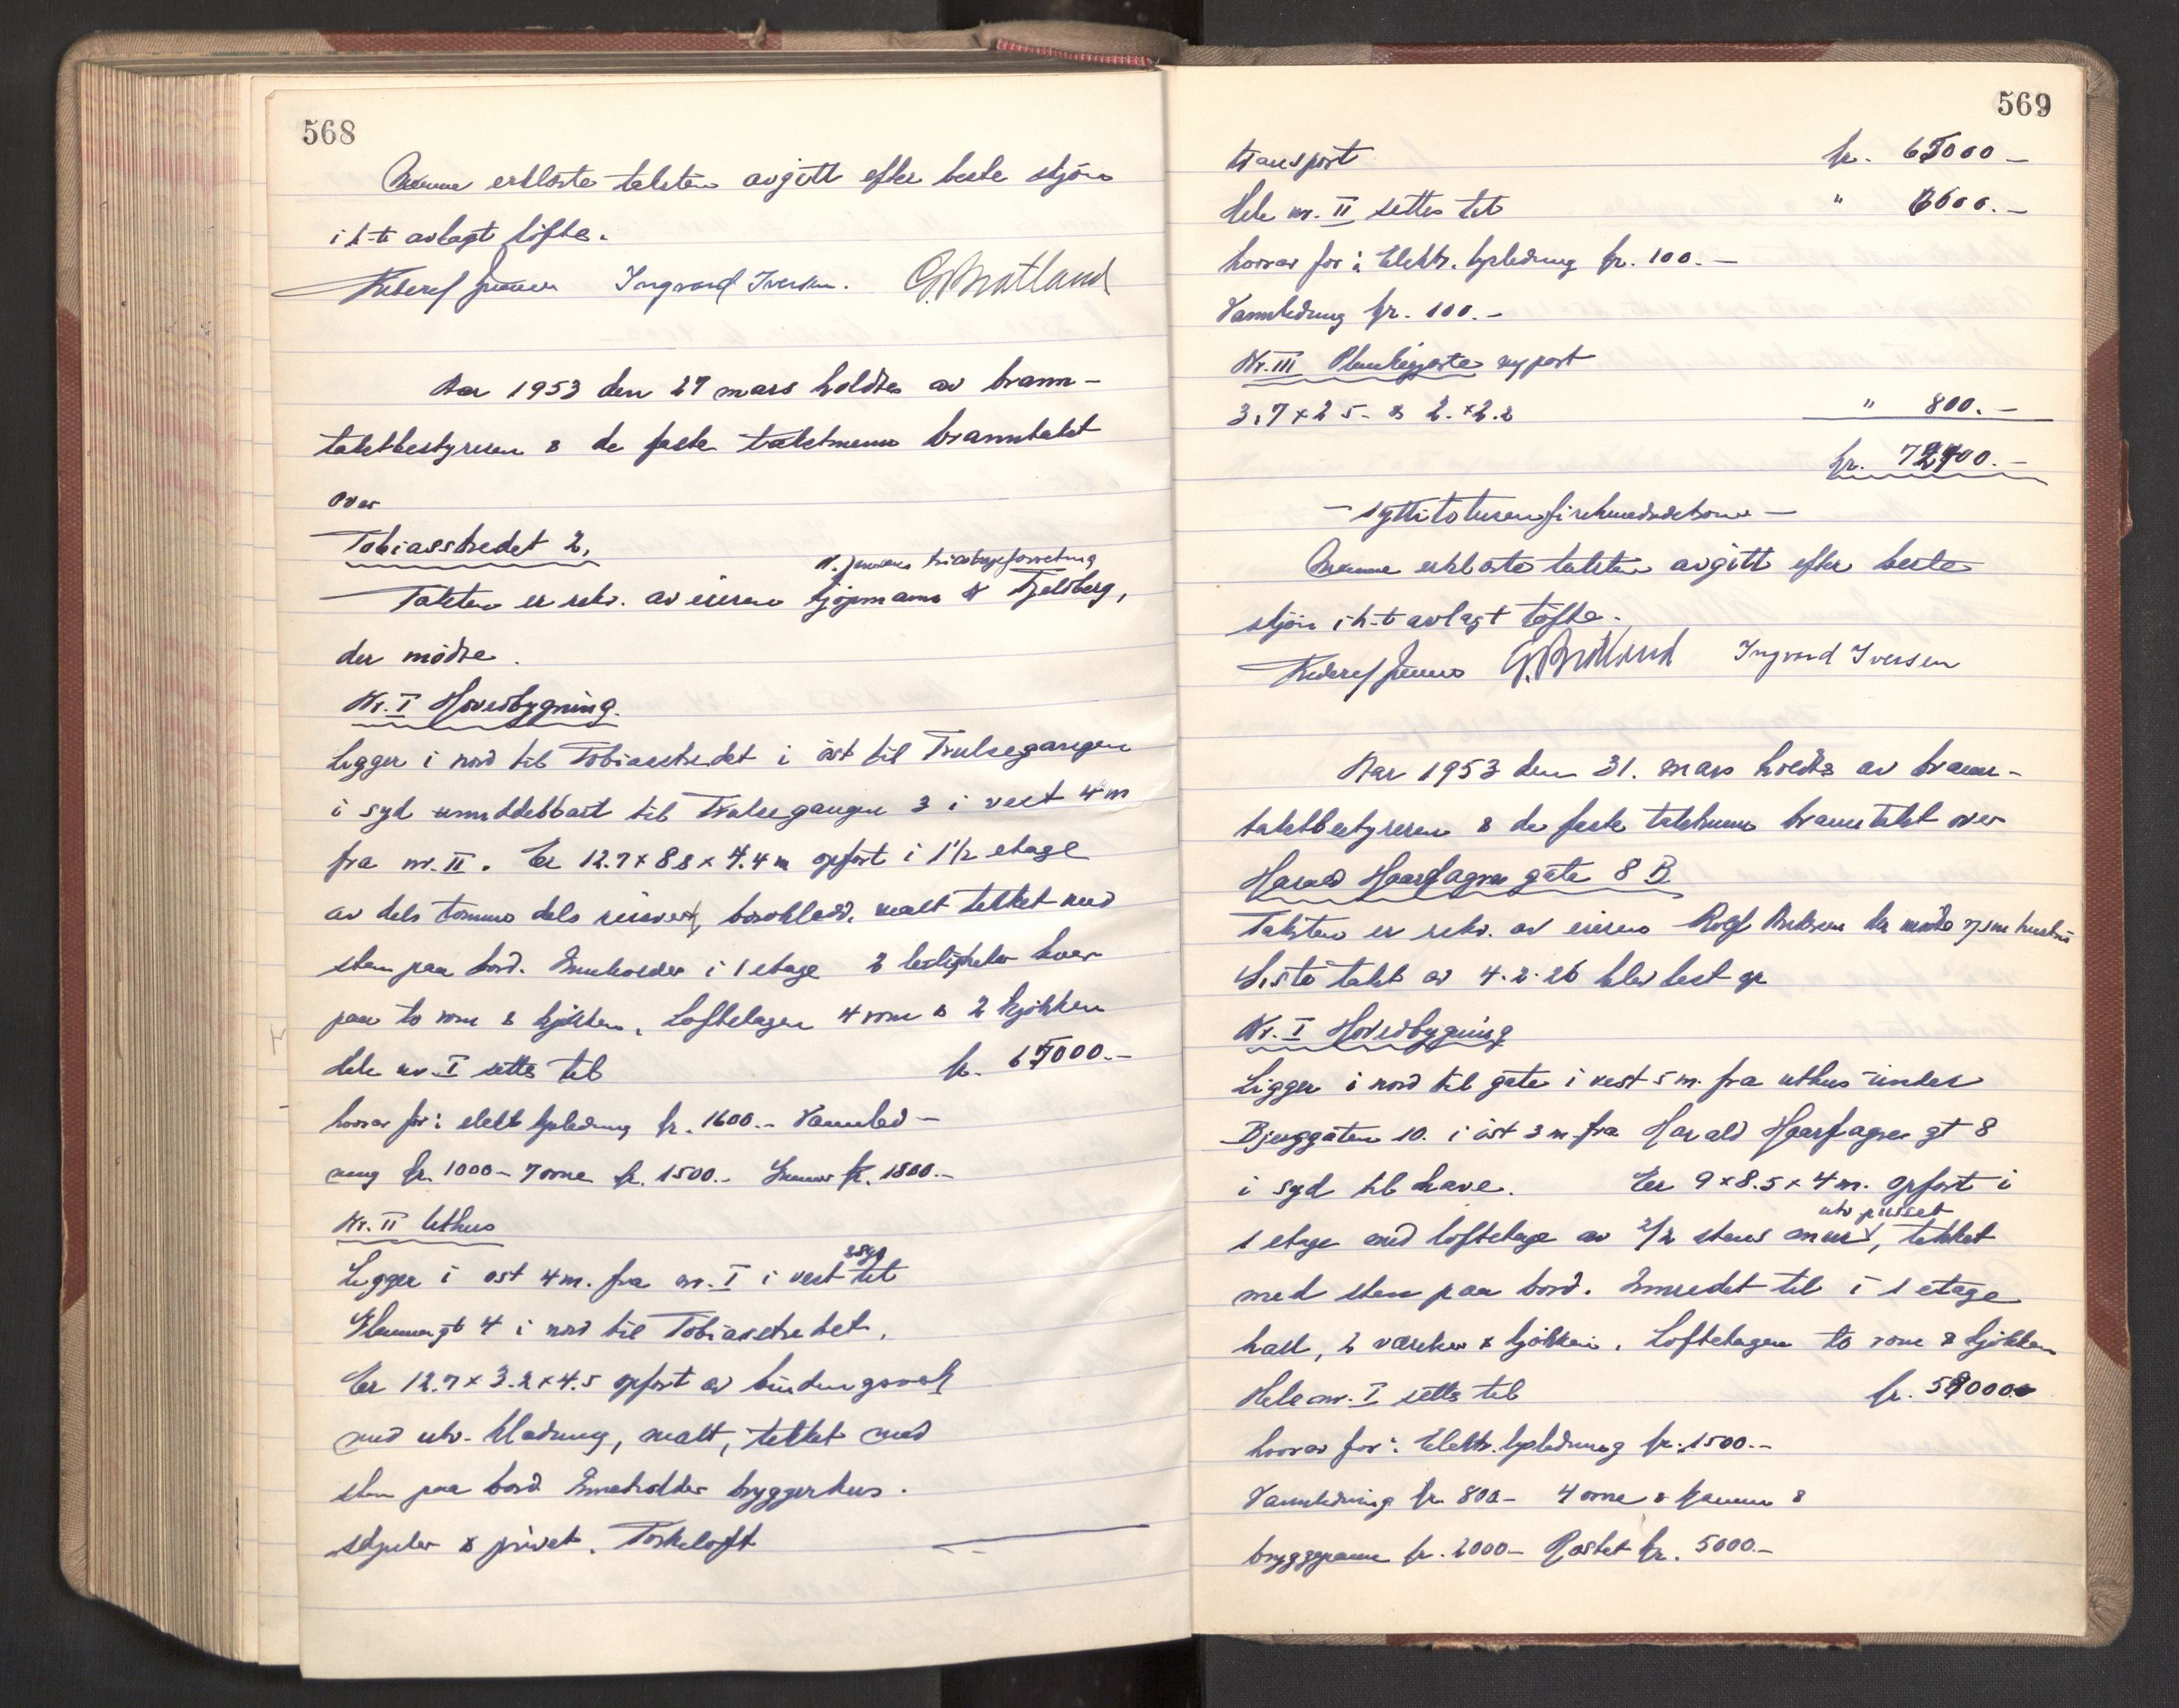 568
Mænne erklærte taksten avgitt efter beste skjøn
i h-t avlagt løfte.
Ingvard Iversen. G. Bratland
Aar 1953 den 27 mars holdtes av brann-
takstbestyreren & de faste takstmenn branntakst
over
Tobiasstredet 2.
Taksten er rekv. av eieren kjøpmann Fjeldberg,
der mødte.
Nr. I Hovedbygning.
Ligger i nord til Tobiasstredet i øst til Trulsegangen
i syd umiddelbart til Trulsegangen 3 i vest 4 m
fra nr. II. Er 12.7 x 8.8 x 4.4 m opført i 1 1/2 etage
av dels tømmer dels reisverk, bordkledd, malt tekket med
sten paa bord. Inneholder i 1 etage 2 leiligheter hver
paa to rom & kjøkken. Loftetagen 4 rom & 2 kjøkken
Hele nr. I settes til kr. 65000.-
hvorav for: elekt. lysledning kr. 1600.- Vannled-
ning kr. 1000- 7 ovne kr. 1500.- kr. 1800.-
Nr. II Uthus
Ligger i øst 4 m. fra nr. I i vest & syd til
4 i nord til Tobiasstredet.
Er 12.7 x 3.2 x 4.5 opført av bindingsverk
med utv. kledning, malt, tekket med
sten paa bord Inneholder bryggerhus.
skjuler & privet. Tørkeloft
569
transport kr. 65000-
Hele nr. II settes til " 6600.-
hvorav for: Elektr. lysledning kr. 100.-
Vannledning kr. 100.-
Nr. III Plankegjerde m/port
3.7 x 2.5 - & 2. x 2.2 " 800.-
kr. 72400.-
- syttitotusenfirehundredekroner -
Mænne erklærte taksten avgitt efter beste
skjøn i h-t avlagt løfte.
G. Bratland Ingvard Iversen
Aar 1953 den 31. mars holdtes av brann-
takstbestyreren & de faste takstmenn branntakst over
Harald Haarfagres gate 8 B
Taksten er rekv. av eieren Rolf der mødte
Siste takst av 4.2.26 blev lest op
Nr. I Hovedbygning
Ligger i nord til gate i vest 5 m. fra uthus under
Bjerggaten 10. i øst 3 m fra Harald Haarfagres gt 8
i syd til have. Er 9 x 8.5 x 4 m. opført i
1 etage med loftetage av 2/2 stens mur utv pusset, tekket
med sten paa bord. Innredet til i 1 etage
hall, 2 værelser & kjøkken. Loftetagen to rom & kjøkken
Hele nr. I settes til kr. 59000.-
hvorav for: Elektr. lysledning kr. 1500.-
Vannledning kr 800- 4 ovne & kamin &
bryggepanne kr. 2000- Pudset kr. 5000.-